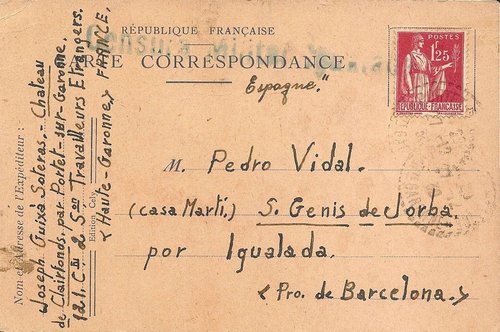 RÉPUBLIQUE FRANÇAISE
Censura Militar
CARTE CORRESPONDANCE
Espagne"
POSTES
1F25
REPUBLIQUE-FRANÇAISE
M. Pedro Vidal.
(casa Martí) S. Genis de Jorba.
por Igualada.
<Pro. de Barcelona.>
Nom et Adresse de l'Expéditeur :
Joseph Guixà Soteras.- Chateau
de Clairfonds. par Portet-sur-Garonne.
121. Cie 2 Son Travailleurs Etrangers.
<Haute-Garonne> FRANCE.
Edition